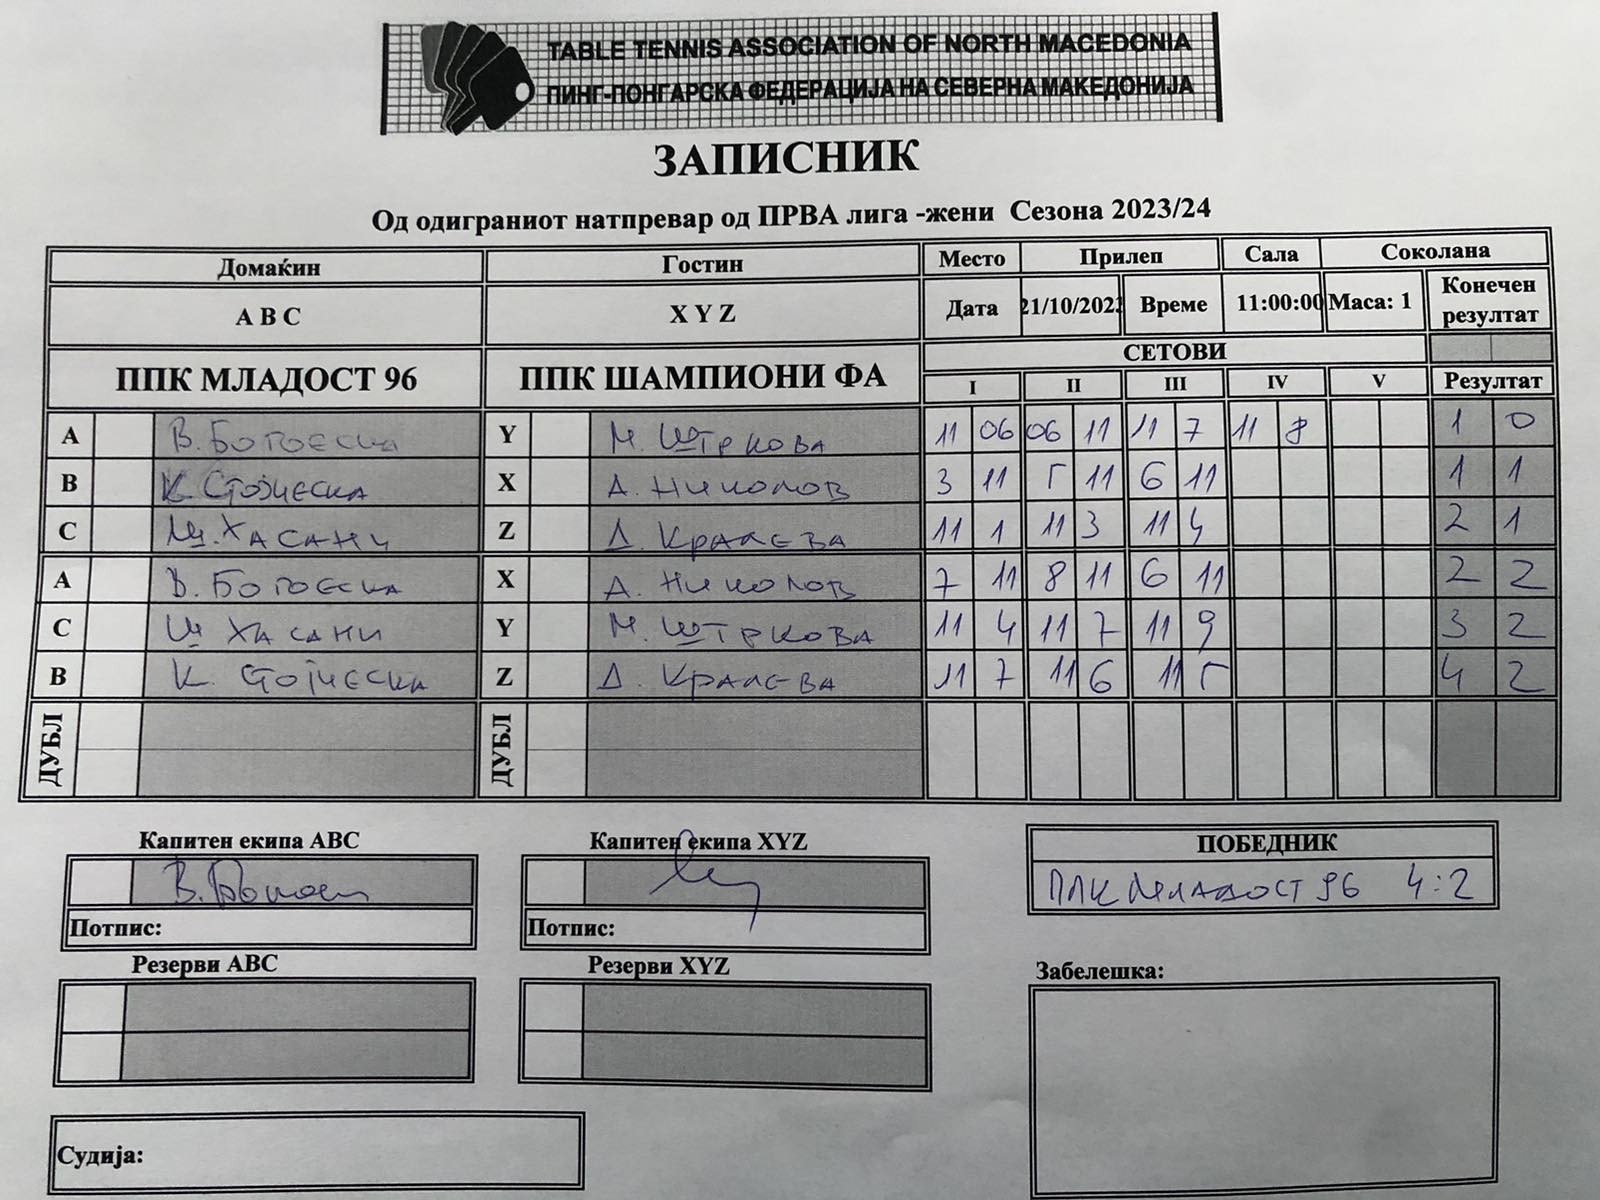 TABLE TENNIS ASSOCIATION OF NORTH MACEDONIA
ПИНГ-ПОНГАРСКА ФЕДЕРАЦИЈА НА СЕВЕРНА МАКЕДОНИЈА
ЗАПИСНИК
Од одиграниот натпревар од ПРВА лига -жени Сезона 2023/24
Домаќин Гостин Место Прилеп Сала Соколана
A B C X Y Z Дата 21/10/2023 Време 11:00:00 Маса: 1 Конечен резултат
ППК МЛАДОСТ 96 ППК ШАМПИОНИ ФА СЕТОВИ
I II III IV V Резултат
A В. Богоеска Y М. Штркова 11 06 06 11 11 7 11 8 1 0
B К. Стојческа X А. Николов 3 11 5 11 6 11 1 1
C Ш. Хасани Z Д. Кралева 11 1 11 3 11 4 2 1
A В. Богоеска X А. Николов 7 11 8 11 6 11 2 2
C Ш Хасани Y М. Штркова 11 4 11 7 11 9 3 2
B К. Стојческа Z Д. Кралева 11 7 11 6 11 5 4 2
ДУБЛ ДУБЛ
Капитен екипа ABC Капитен екипа XYZ ПОБЕДНИК
ППК Младост 96 4:2
Потпис: Потпис:
Резерви ABC Резерви XYZ Забелешка:
Судија: